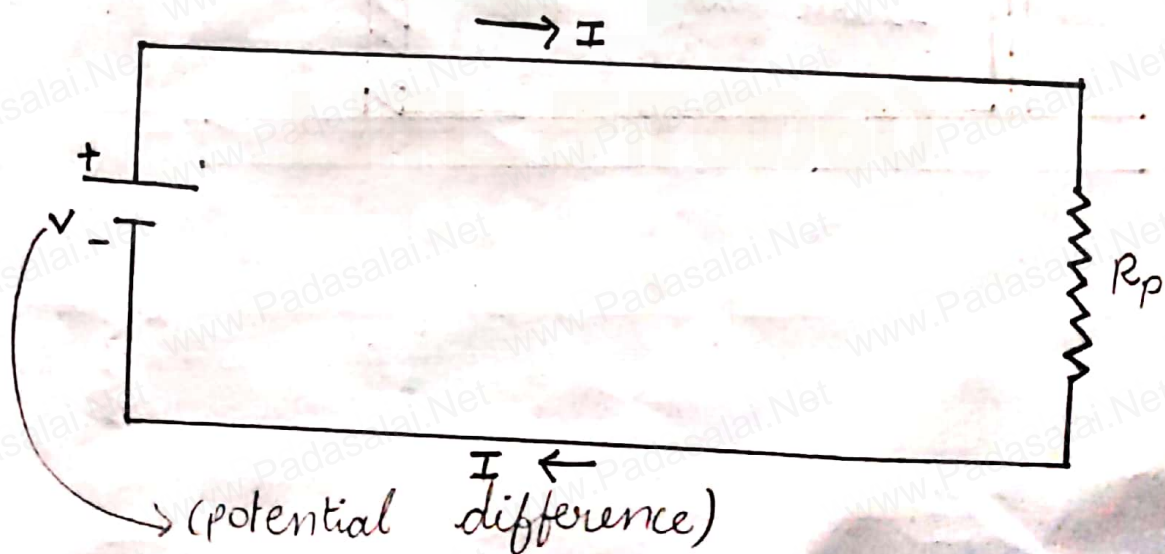 → I
+
V
-
Rp
I ←
(potential difference)
www.Padasalai.Net